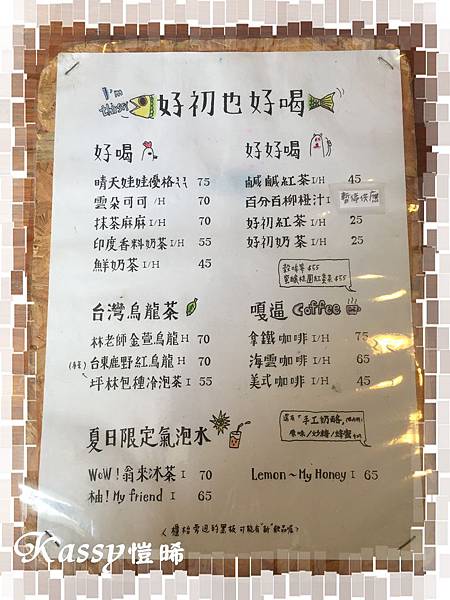 I'm thirsty
好初也好喝
好喝
晴天娃娃優格 I 75
雲朵可可 I/H 70
抹茶麻麻 I/H 70
印度香料奶茶 I/H 55
鮮奶茶 I/H 45
好好喝
鹹鹹紅茶 I/H 45
百分百柳橙汁 I 暫停供應
好初紅茶 I/H 25
好初奶茶 I/H 25
台灣烏龍茶
林老師金萱烏龍 H 70
台東鹿野紅烏龍 H 70
坪林包種冷泡茶 I 55
嘎逼 Coffee
拿鐵咖啡 I/H 65
海雲咖啡 I/H 65
美式咖啡 I/H 45
還有「手工奶酪」
原味/抄糖/蜂蜜
夏日限定氣泡水
WoW!翁來冰茶 I 70
柚!My friend I 65
Lemon~My Honey I 65
Kassy愷晞